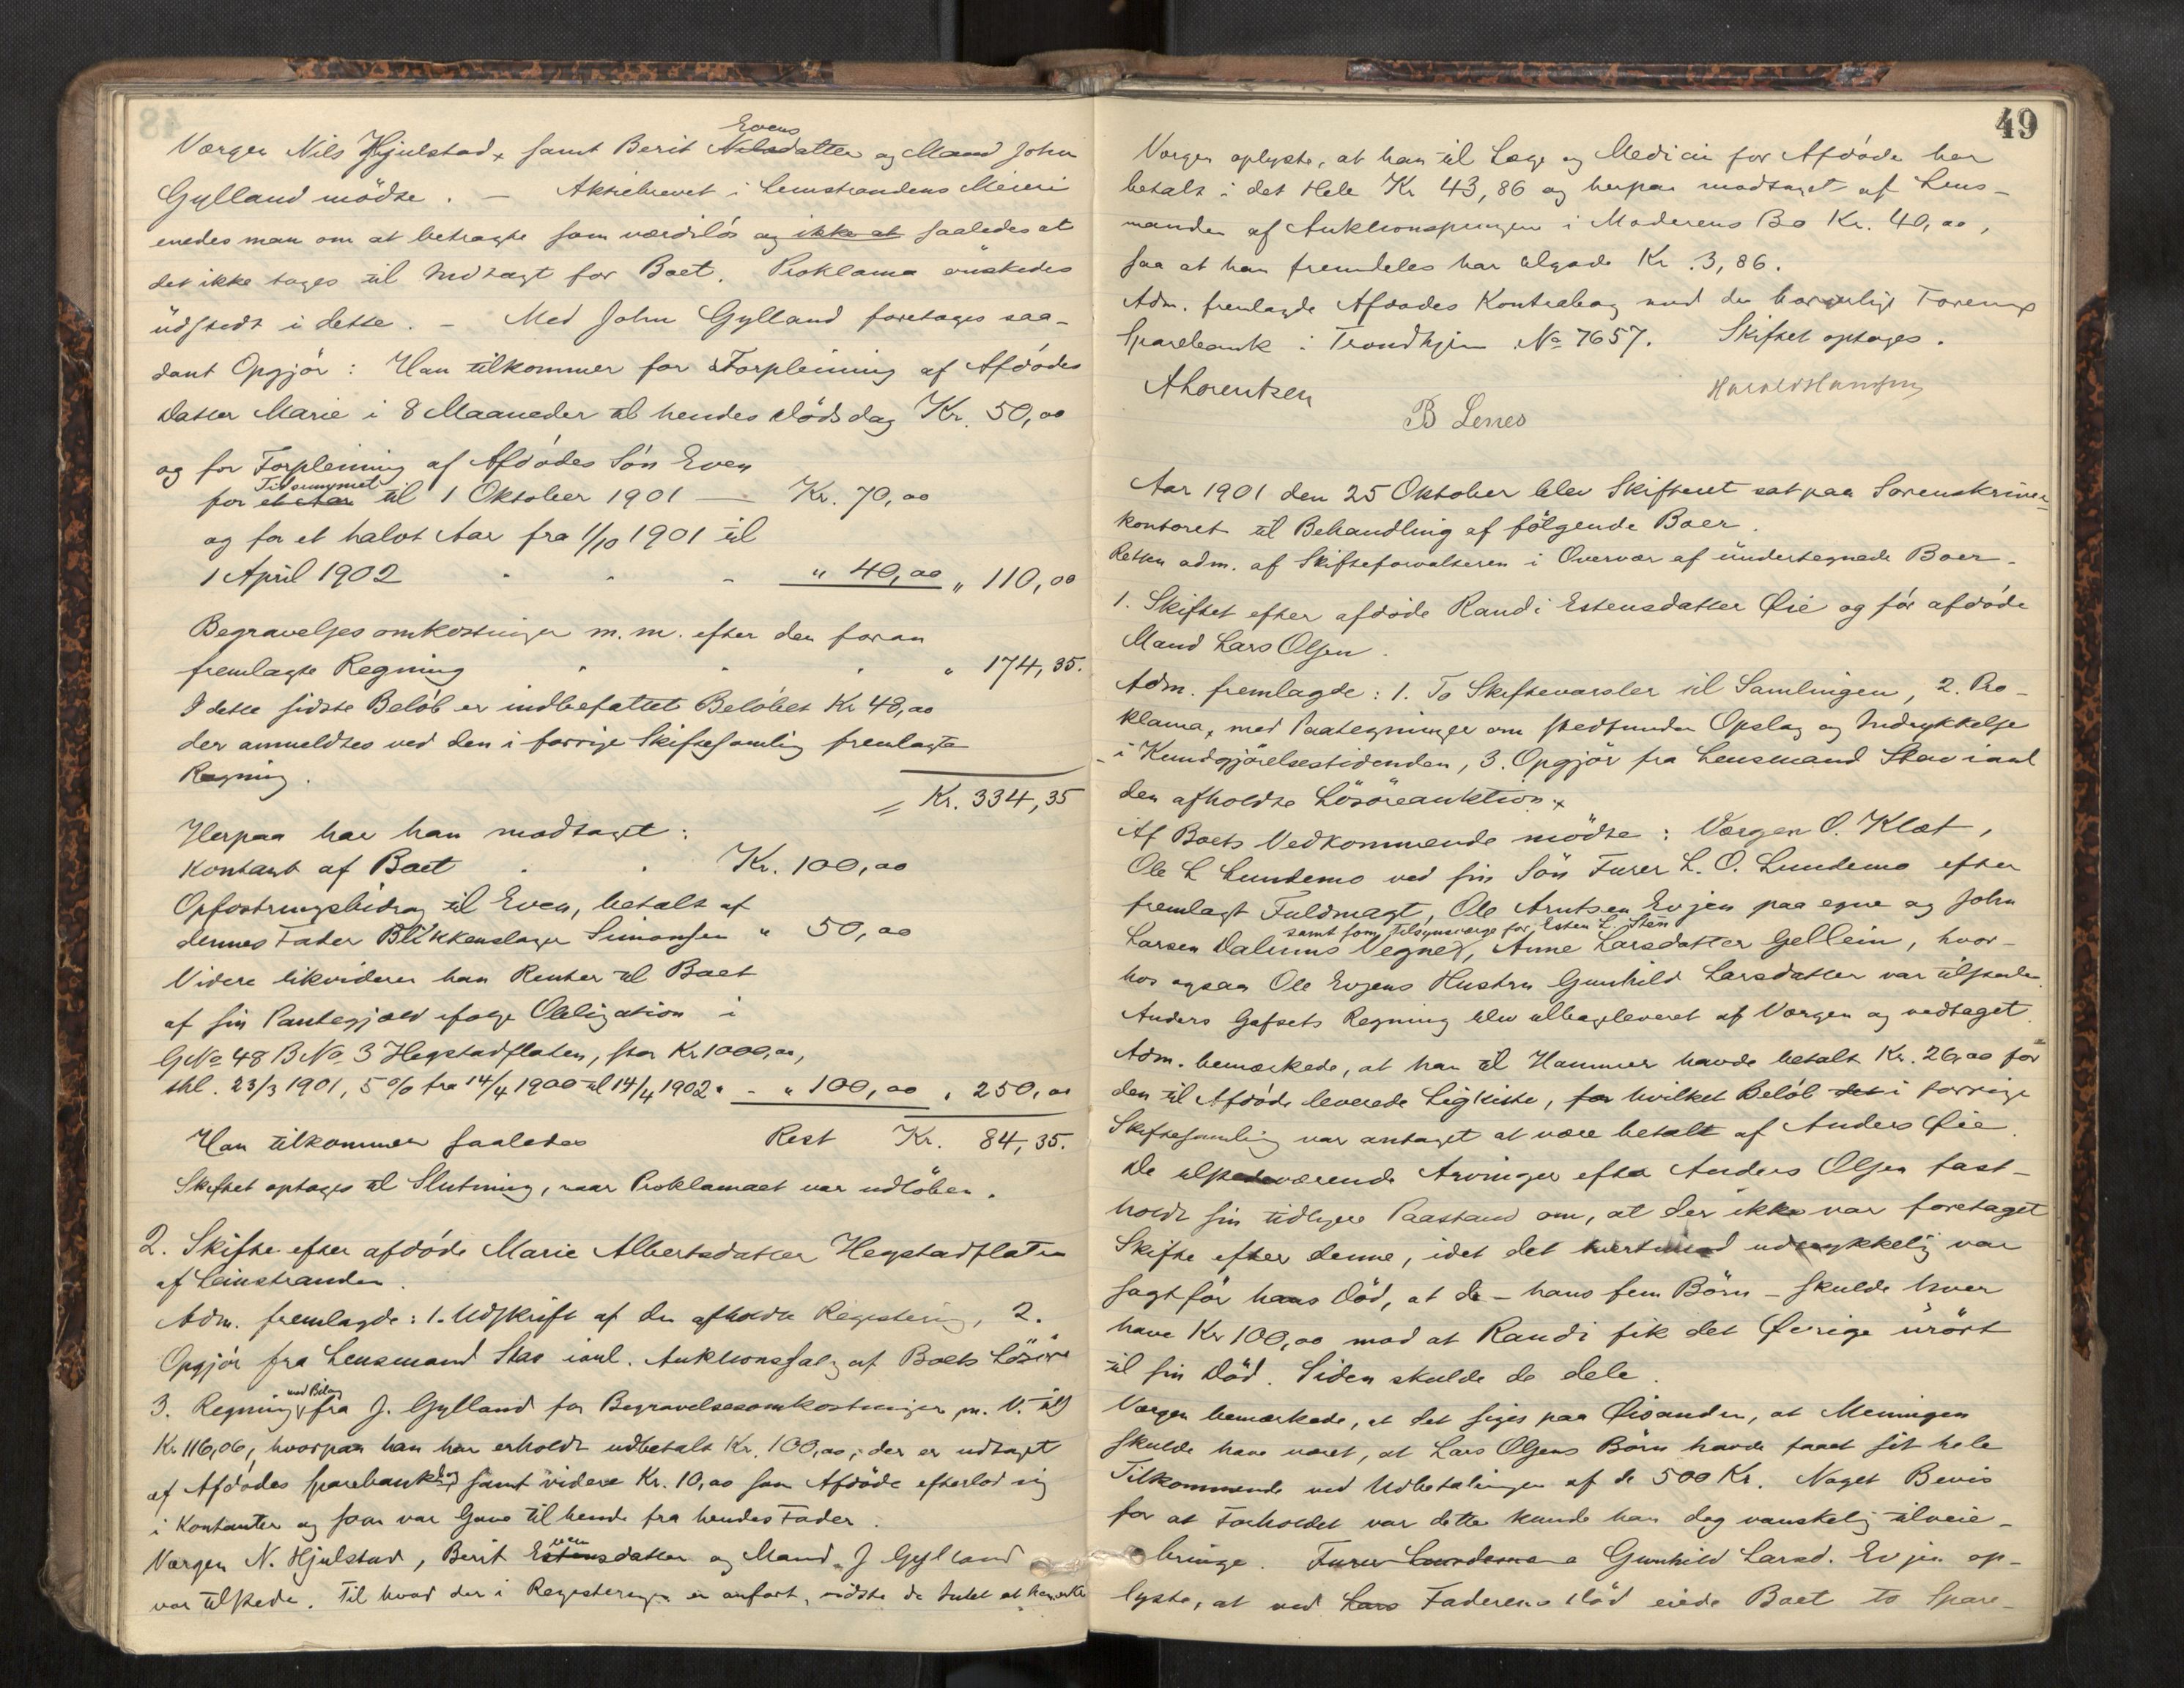 48
Værgen Nils Hjulstad, samt Berit Evensdatter og Mand John
Gylland mödte. – Aktiebrevet i Leinstrandens Meieri
enedes man om at betragte som værdilös og ikke at saaledes at
det ikke tages til Indtægt for Boet. Proklama önskedes
üdstedt i dette. – Med John Gylland foretoges saa-
dant Opgjör: Han tilkommer for Forpleining af Afdödes
Datter Marie i 8 Maaneder til hendes Dödsdag Kr. 50,00
og for Forpleining af Afdödes Sön Even
Tidsrummet
for et Aar til 1 Oktober 1901 — Kr. 70,00
og for et halvt Aar fra 1/10 1901 til
1 April 1902 " 40,00 " 110,00
Begravelsesomkostninger m.m. efter den foran
fremlagte Regning " 174,35.
I dette sidste Belöb er indbefattet Belöbet Kr 48,00
der anmeldtes ved den i forrige Skiftesamling fremlagte
Regning.
= Kr. 334,35
Herpaa har han modtaget:
Kontant af Boet Kr. 100,00
Opfostringsbidrag til Even, betalt af
dennes Fader Blikkenslager Simonsen " 50,00
Videre likviderer han Renter til Boet
af sin Pantegjæld ifölge Obligation i
GNo 48 BNo 3 Hegstadflaten, stor Kr 1000,00,
thl. 23/3 1901, 5 % fra 14/4 1900 til 14/4 1902. – " 100,00 " 250,00
Han tilkommer saaledes Rest Kr. 84,35.
Skiftet optages til Slutning, naar Proklamaet var udlöben.
2. Skifte efter afdöde Marie Albertsdatter Hegstadflaten
af Leinstranden.
Adm. fremlagde: 1. Udskrift af den afholdte Registering, 2.
Opgjör fra Lensmand Stav ianl. Auktionssalg af Boets Lösöre
3. Regning med Bilag fra J. Gylland for Begravelsesomkostninger m. V. till
Kr 116,06, hvorpaa han har erholdt udbetalt Kr. 100,00, der er udtaget
af Afdödes Sparebankbog samt videre Kr. 10,00 som Afdöde efterlod sig
i Kontanter og som var Gave til hende fra hendes Fader.
Værgen N. Hjulstad, Berit Evensdatter og Mand J Gylland
var tilstede. Til hvad der i Registeringen er anfört, vidste de Intet at bemærke
49
Værgen oplyste, at han til Læge og Medicin for Afdöde har
betalt i det Hele Kr 43,86 og herpaa modtaget af Lens-
manden af Auktionspengene i Moderens Bo Kr. 40,00,
saa at han fremdeles har tilgode Kr. 3,86.
Adm. fremlagde Afdödes Kontrabog med den borgerlige Forenings
Sparebank i Trondhjem No 7657. Skiftet optages.
A Lorentsen
B Lenes
Harald Hansen
Aar 1901 den 25 Oktober blev Skifteret sat paa Sorenskriver-
kontoret til Behandling af fölgende Boer.
Retten adm. af Skifteforvalteren i Overvær af üндertegnede Boer.
1. Skiftet efter afdöde Randi Estensdatter Øie og för afdöde
Mand Lars Olsen.
Adm. fremlagde: 1. To Skiftevarsler til Samlingen, 2. Pro-
klama, med Paategninger om stedfunden Opslag og Indrykkelse
i Kundgjörelsestidenden, 3. Opgjör fra Lensmand Stav ianl
den afholdte Lösöreauktion.
Af Boets Vedkommende mödte: Værgen O. Klæt,
Ole L Lundemo ved sin Sön Furer L. O. Lundemo efter
fremlagt Fuldmagt, Ole Arntsen Evjen paa egne og John
samt som Tilsynsværge for Esten L. Sten
Larsen Dalums Vegne, Anne Larsdatter Gellein, hvor-
hos ogsaa Ole Evjens Hustru Gunhild Larsdatter var tilstede.
Anders Gafsets Regning blev tilbageleveret af Værgen og vedtaget.
Adm. bemærkede, at han til Hammer havde betalt Kr. 26,00 for
den til Afdöde leverede Ligkiste, for hvilket Belöb det i forrige
Skiftesamling var antaget at være betalt af Anders Øie.
De tilstedeværende Arvinger efter Anders Olsen fast-
holdt sin tidligere Paastand om, at der ikke var foretaget
Skifte efter denne, idet det tvertimod udtrykkelig var
sagt för hans Död, at de – hans fem Börn – skulde hver
have Kr 100,00 mod at Randi fik det Övrige urört
til sin Död. Siden skulde de dele.
Værgen bemærkede, at det siges paa Øisanden, at Meningen
skulde have været, at Lars Olsens Börn havde faaet sit hele
Tilkommende ved Udbetalingen af de 500 Kr. Noget Bevis
for at Forholdet var dette kunde han dog vanskelig tilveie-
bringe. Furer Lundemo Gunhild Larsd. Evjen op-
lyste, at ved Lars Faderens Död eiede Boet to Spare-